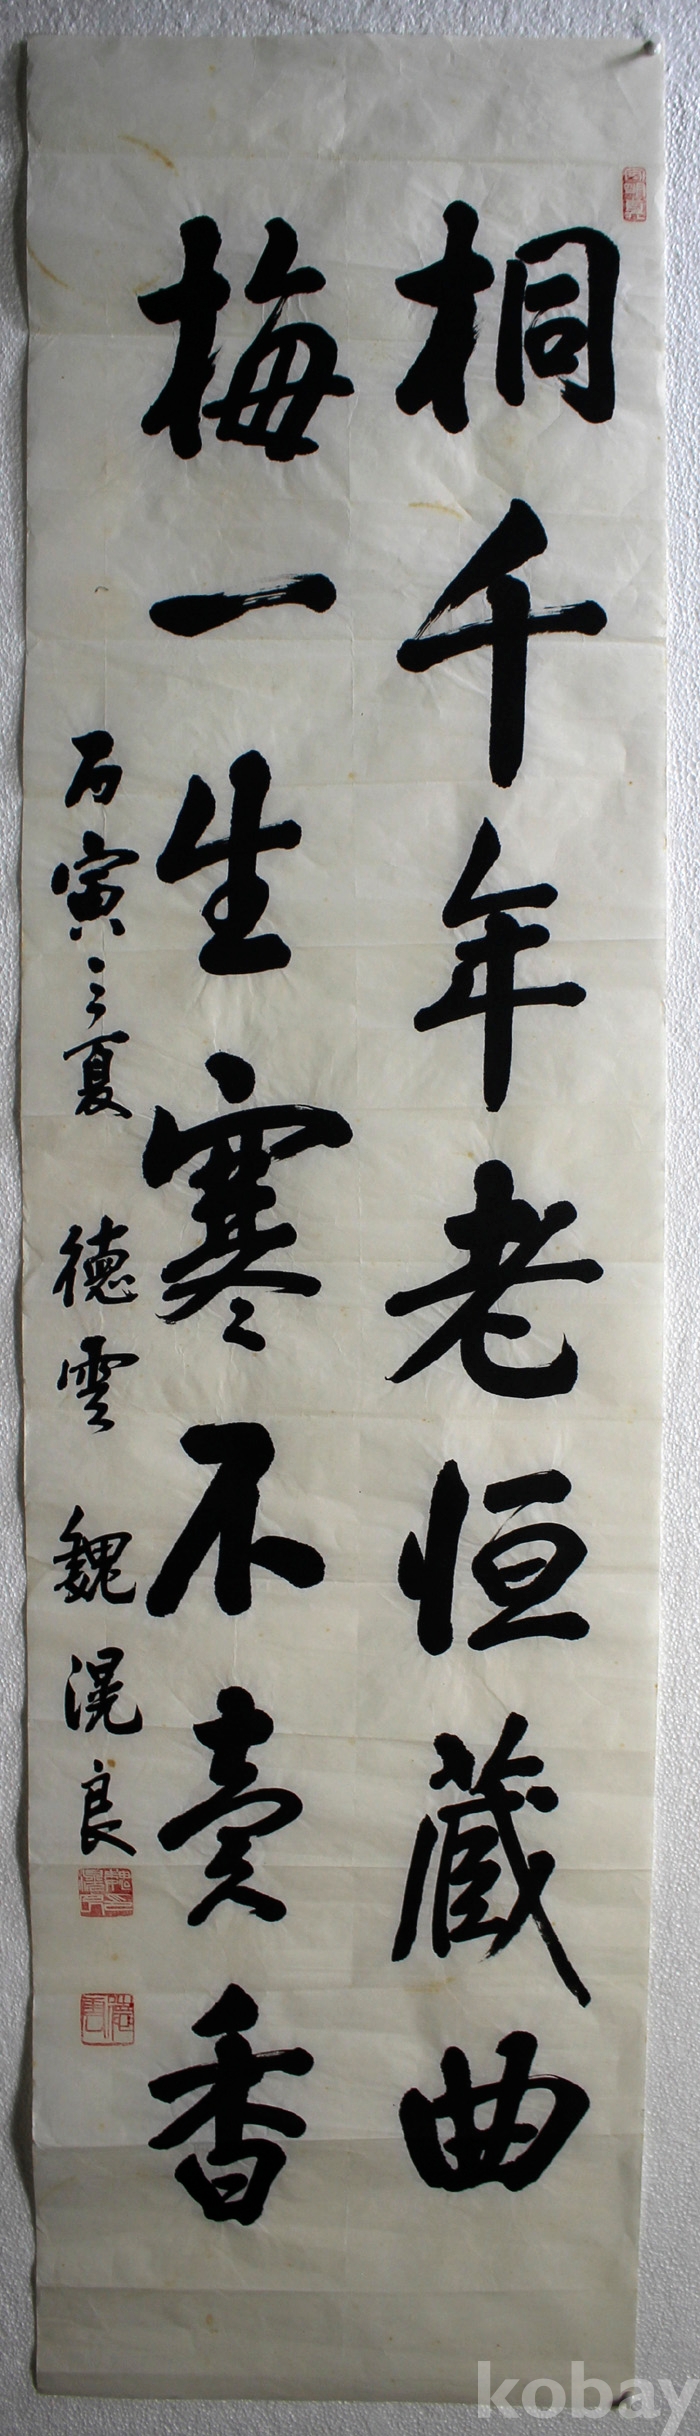 桐千年老恒藏曲
梅一生寒不賣香
丙寅之夏 德雲 魏滉良
kobay